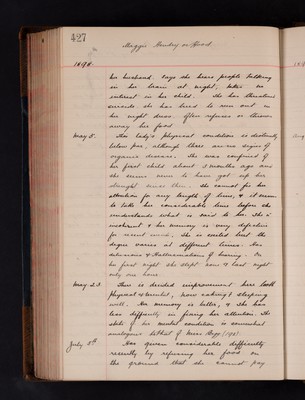 427
Maggie Hendry or Hood
1894.
her husband. says she hears people talking
on her brain at night, takes no
interest in her child. She has threatened
suicide she has tried to run out in
her night dress. Often refuses or throws
away her food
May 5. This lady's physical condition is distinctly
below par, although there are no signs of
organic disease. She was confined of
her first child about 3 months ago and
she seems never to have got up her
strength since then. She cannot fix her
attention for any length of time, & it seems
to take her considerable time before she
understands what is said to her. She is
incoherent & her memory is very defective
for recent events. She is excited but the
degree varies at different times. Has
delusions & Hallucinations of hearing. On
her first night she slept none & last night
only one hour.
May 23. There is decided improvement here both
physical & mental, now eating & sleeping
well. Her memory is better, & she has
less difficulty in fixing her attention. The
state of her mental condition is somewhat
analogous to that of Miss
July 5th Has given considerable difficulty
recently by refusing her food on
the ground that she cannot pay